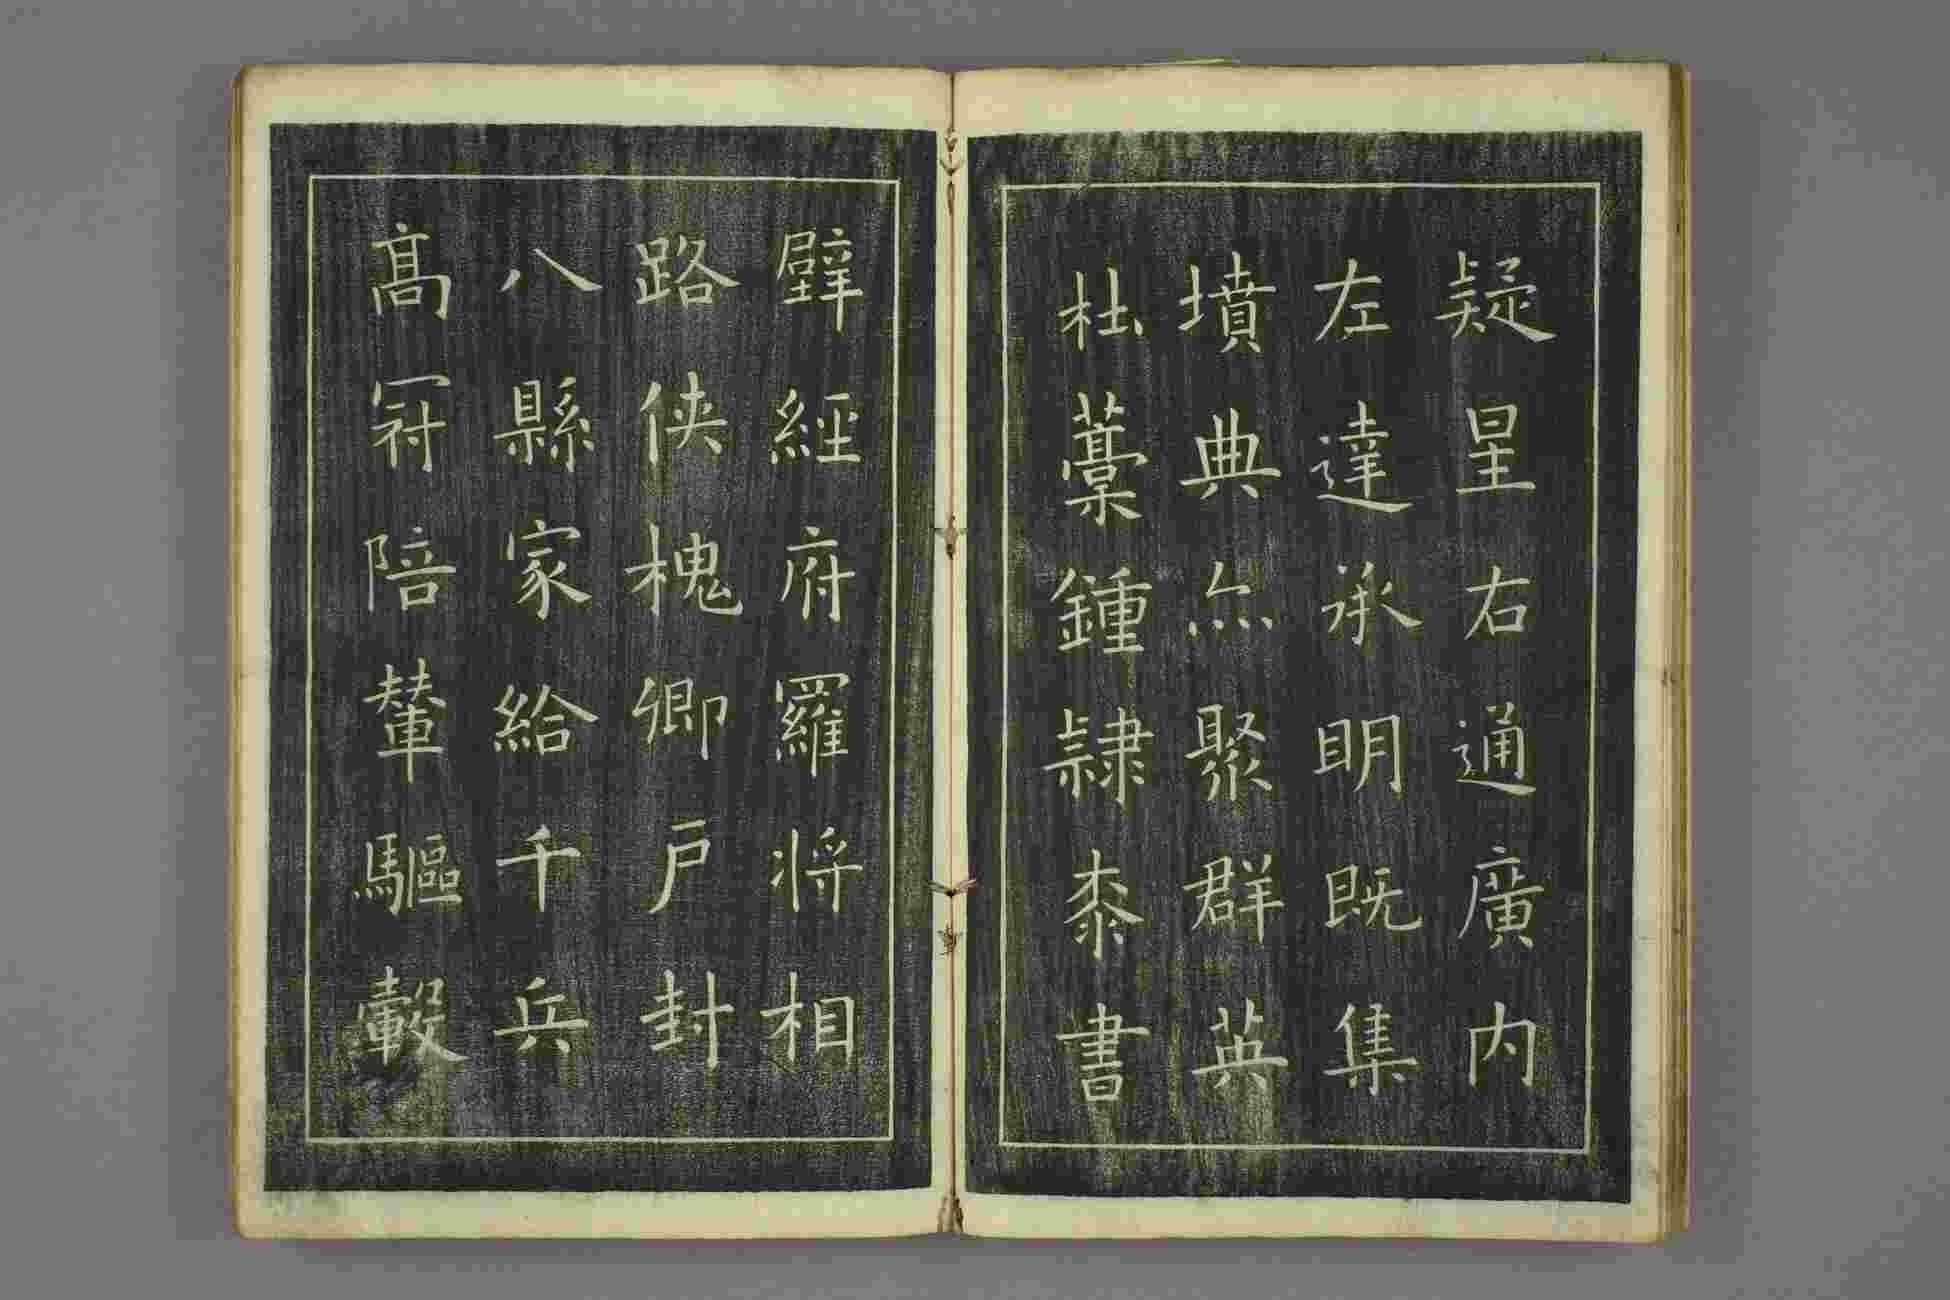 疑星右通廣内
左達承明既集
墳典亦聚群英
杜藁鍾隷桼書
壁經府羅将相
路俠槐卿戸封
八縣家給千兵
髙冠陪輦驅轂